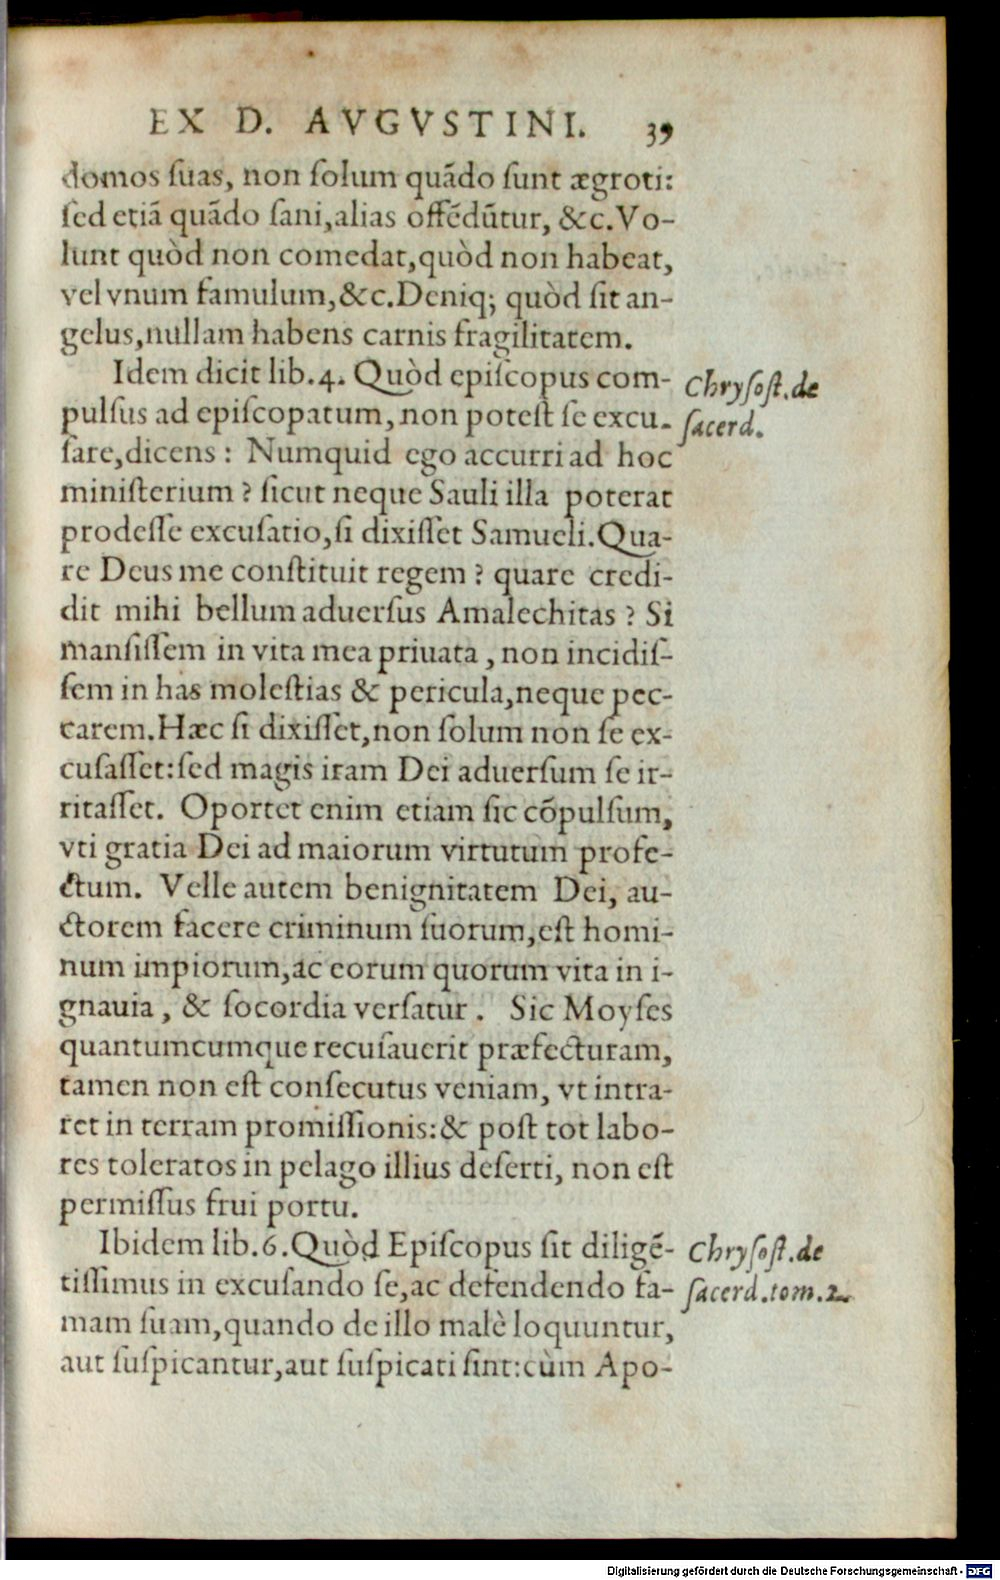 EX D. AVGVSTINI. 39
domos ſuas, non ſolum quãdo ſunt ægroti:
ſed etiã quãdo ſani, alias offẽdũtur, &c. Vo-
lunt quòd non comedat, quòd non habeat,
vel vnum famulum, &c. Deniq; quòd ſit an-
gelus, nullam habens carnis fragilitatem.
Idem dicit lib. 4. Quòd epiſcopus com-
Chryſoſt. de
pulſus ad epiſcopatum, non poteſt ſe excu-
ſacerd.
ſare, dicens: Numquid ego accurri ad hoc
miniſterium? ſicut neque Sauli illa poterat
prodeſſe excuſatio, ſi dixiſſet Samueli. Qua-
re Deus me conſtituit regem? quare credi-
dit mihi bellum aduerſus Amalechitas? Si
manſiſſem in vita mea priuata, non incidiſ-
ſem in has moleſtias & pericula, neque pec-
carem. Hæc ſi dixiſſet, non ſolum non ſe ex-
cuſaſſet: ſed magis iram Dei aduerſum ſe ir-
ritaſſet. Oportet enim etiam ſic cõpulſum,
vti gratia Dei ad maiorum virtutum profe-
ctum. Velle autem benignitatem Dei, au-
ctorem facere criminum ſuorum, eſt homi-
num impiorum, ac eorum quorum vita in i-
gnauia, & ſocordia verſatur. Sic Moyſes
quantumcumque recuſauerit præfecturam,
tamen non eſt conſecutus veniam, vt intra-
ret in terram promiſſionis: & poſt tot labo-
res toleratos in pelago illius deſerti, non eſt
permiſſus frui portu.
Ibidem lib. 6. Quòd Epiſcopus ſit diligẽ-
Chryſoſt. de
tiſſimus in excuſando ſe, ac defendendo fa-
ſacerd. tom. 2.
mam ſuam, quando de illo malè loquuntur,
aut ſuſpicantur, aut ſuſpicati ſint: cùm Apo-
Digitalisierung gefördert durch die Deutsche Forschungsgemeinschaft - DFG